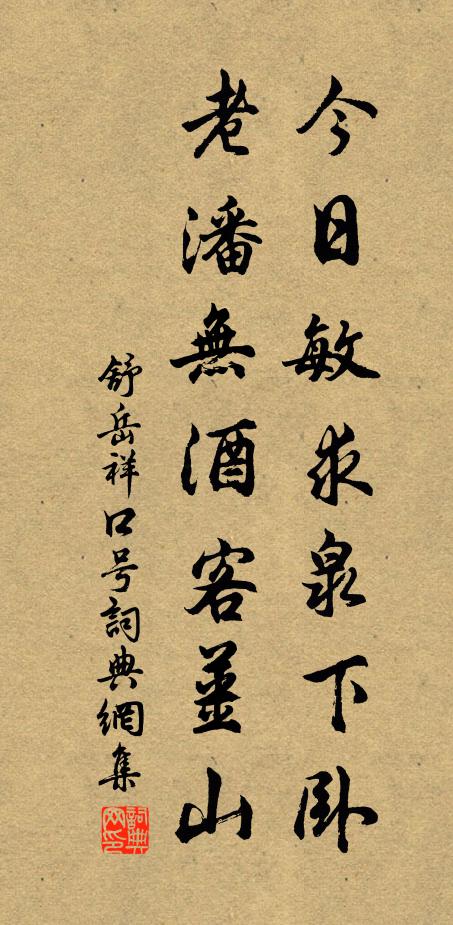 今日敏求泉下卧
老潘無酒客薑山
舒岳祥口号詞典網集
詞典網印